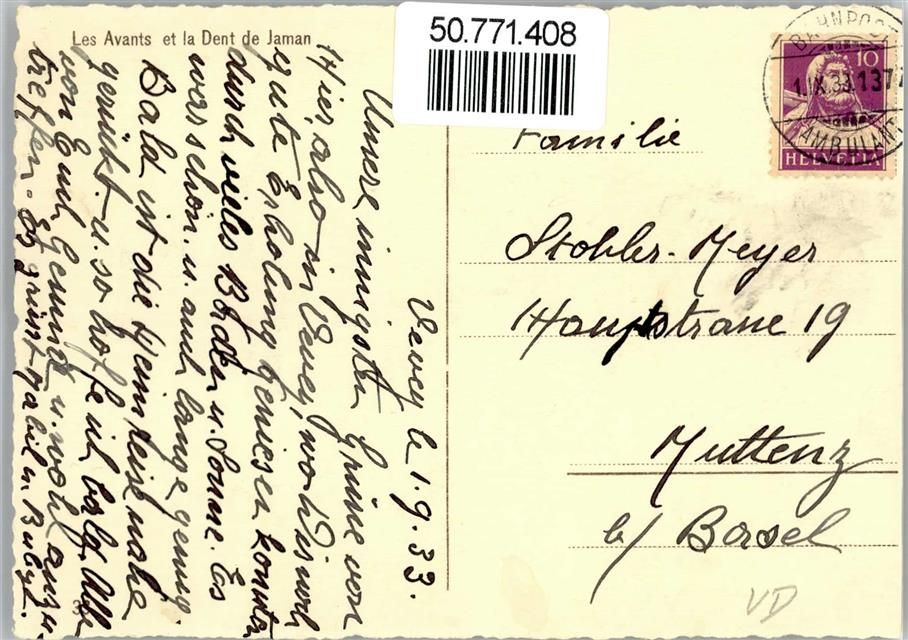 Les Avants et la Dent de Jaman
50.771.408
BAHNPOST
1.IX.33.137
AMBULANT
10
HELVETIA
Familie
Stohler-Meyer
Hauptstrasse 19
Muttenz
b/ Basel
VD
Vevey le 1.9.33.
Unsere innigsten Grüsse von
Hier, also in Vevey, wo wir noch
gute Erholung geniessen konnten
durch vieles Baden u. Sonne. Es
war schön. u. auch lange genug.
Bald ist die Heimreise nahe
gerückt u. so hoffe ich bald Alle
von Euch gesund u. wohl anzu
treffen. Es grüsst